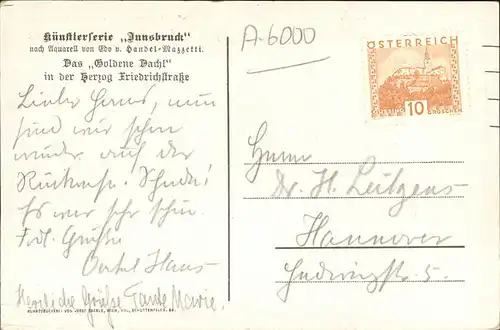 Künstlerserie „Innsbruck"
nach Aquarell von Edo v. Handel-Mazzetti.
Das „Goldene Dachl"
in der Herzog Friedrichstraße
Lieber Hans, nun
sind wir schon
wieder auf der
Rückreise. Schade!
Es war sehr schön.
Grüße
Onkel Hans
Herzliche Grüße Tante Marie.
A-6000
ÖSTERREICH
10
GROSCHEN
Herrn
Dr. H. Leitgens
Hannover
5.